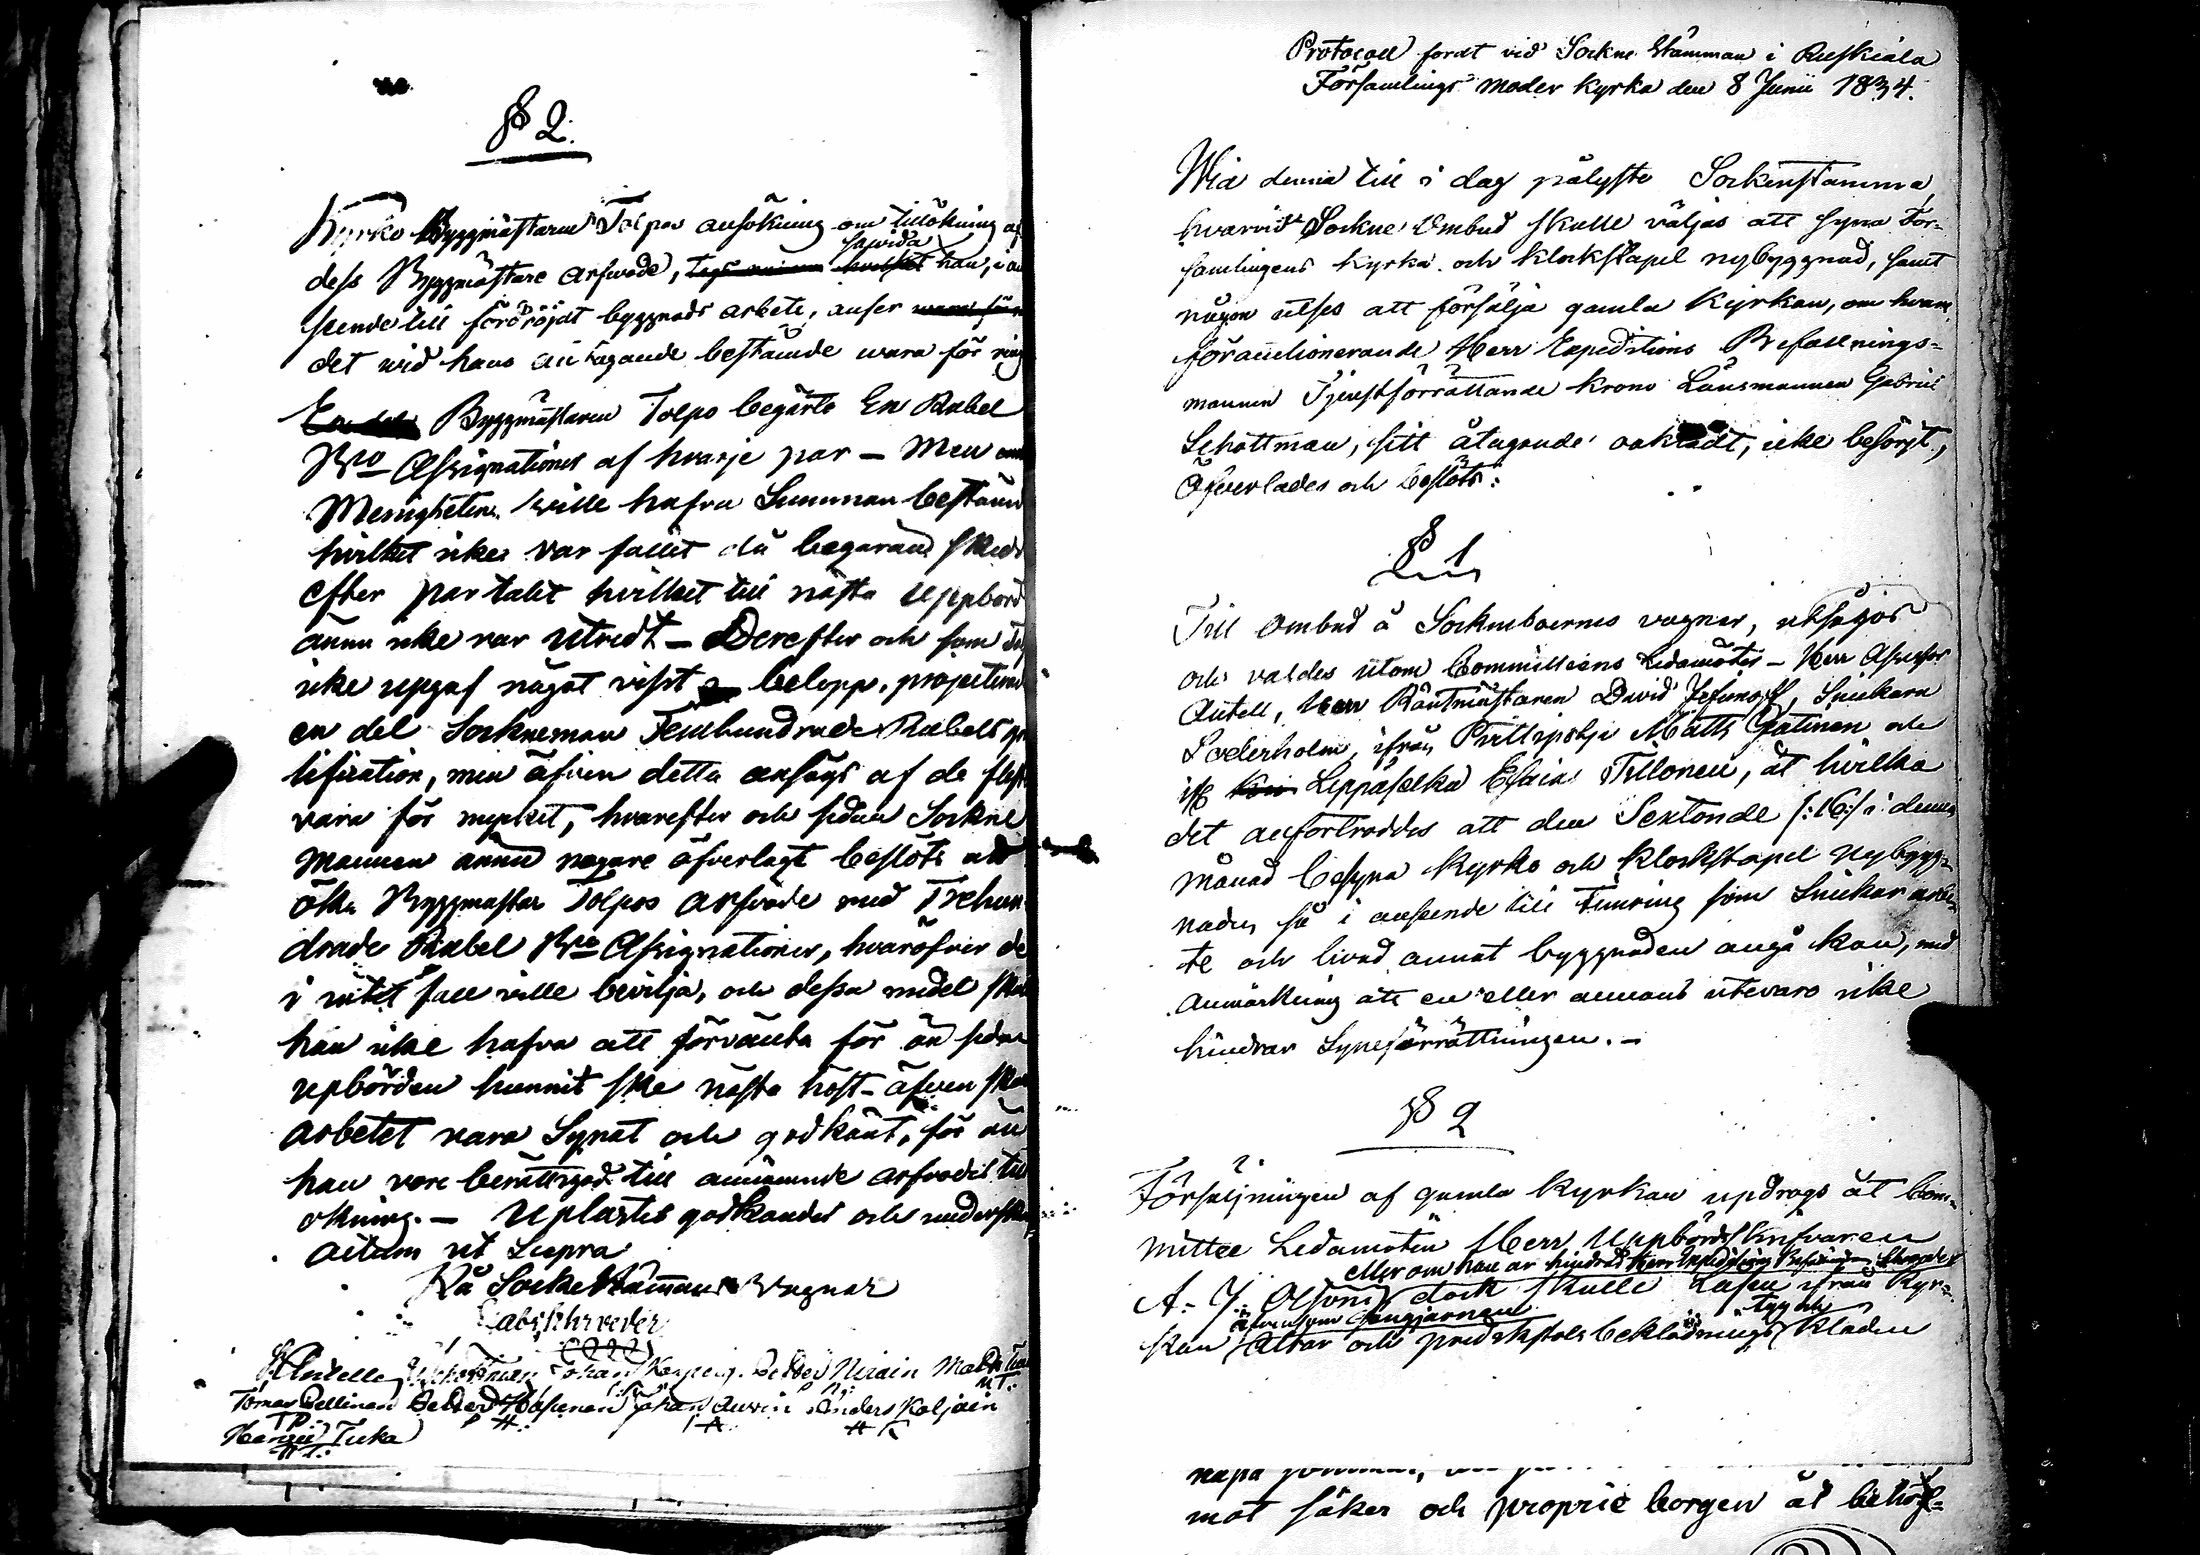 § 2.
Kyrko Byggmästaren Tolpos ansökning om tillökning af
dess Byggmästare arfwode, såvida han, i an
seende till föröröjdt byggnads arbete, anser
det wid hans antagande bestämde wara för ring
Byggmästaren Tolpo begärte En Rubel
Bco Assignationer af hvarje par – Men
Menigheten wille hafva Summan bestämd
hvilket icke var fallet då begäran skedt
efter partalet hvilket till nästa Uppbörd
ännu icke var utredt – Derefter och som
icke uppgaf något visst belopp, projecterade
en del Sockneman Femhundrade Rubels gra
tification, men äfven detta ansågs af de fleste
vara för mycket, hvarefter och sedan Sockne
Mannen ännu nogare öfverlagt beslöts att
öka Byggmästar Tolpos arfvode med Trehun
drade Rubel Bco Assignationer, hvaröfver de
i intet fall ville bevilja, och dessa medel skall
han icke hafva att förvänta för än sedan
upbörden hunnit ske nästa höst – äfven skall
arbetet vara Synat och godkänt, för än
han vore berättigad till annämnde arfvodes till
ökning. – Uplästes godkändes och underskr
actum ut Supra
På Sockne Stämmans vägnar
Gab: Schroeder
Johan
Tomas Pellinen Petter Johan Anders Koljoin
T P. P H: I A: A K
Tuka
Protocoll fördt vid Sockne Stämman i Ruskiala
Församlings moder kyrka den 8 Junii 1834.
Wid denna till i dag pålyste Sockenstämma,
hvarvid Sockne Ombud skulle väljas att syna För-
samlingens kyrka och klockstapel nybyggnad, samt
någon utses att försälja gamla Kyrkan, om hvars
förauctionerande Herr Expeditions Befallnings-
mannen Tjenstförrättande Krono Länsmannen Gabriel
Schöttman, sitt åtagande oaktadt, icke besörjt,
Öfverlades och beslöts:
§ 1
Till ombud å Socknboernes vägnar, utsågos
och valdes utom Committeens Ledamöter – Herr Assessor
Antell, Herr Räntmästaren David Jefimoff, Snickare
Söderholm, ifrån Pirttipohja Matts Gatinen och
ifr Leppäselkä Esaias Tillonen, åt hvilka
det anförtroddes att den Sextonde /:16:/ i denna
månad besyna Kyrko och Klockstapel Nybygg-
naden, så i anseende till Timring som Snickar arbe-
te och hvad annat byggnaden angå kan, med
anmärkning att en eller annans utevaro icke
hindrar Syneförrättningen. –
§ 2
Försäljningen af gamla Kyrkan updrogs åt Com-
mittee Ledamoten Herr Uppbördsskrifvaren
eller om han är hindrad Herr Expeditions
A. J. Olsoni dock skulle Låsen ifrån Kyr-
äfvensom gångjernen tyg och
kan Altar och predikstols beklädnings kläden
mot säker och proprie borgen åt behöf-